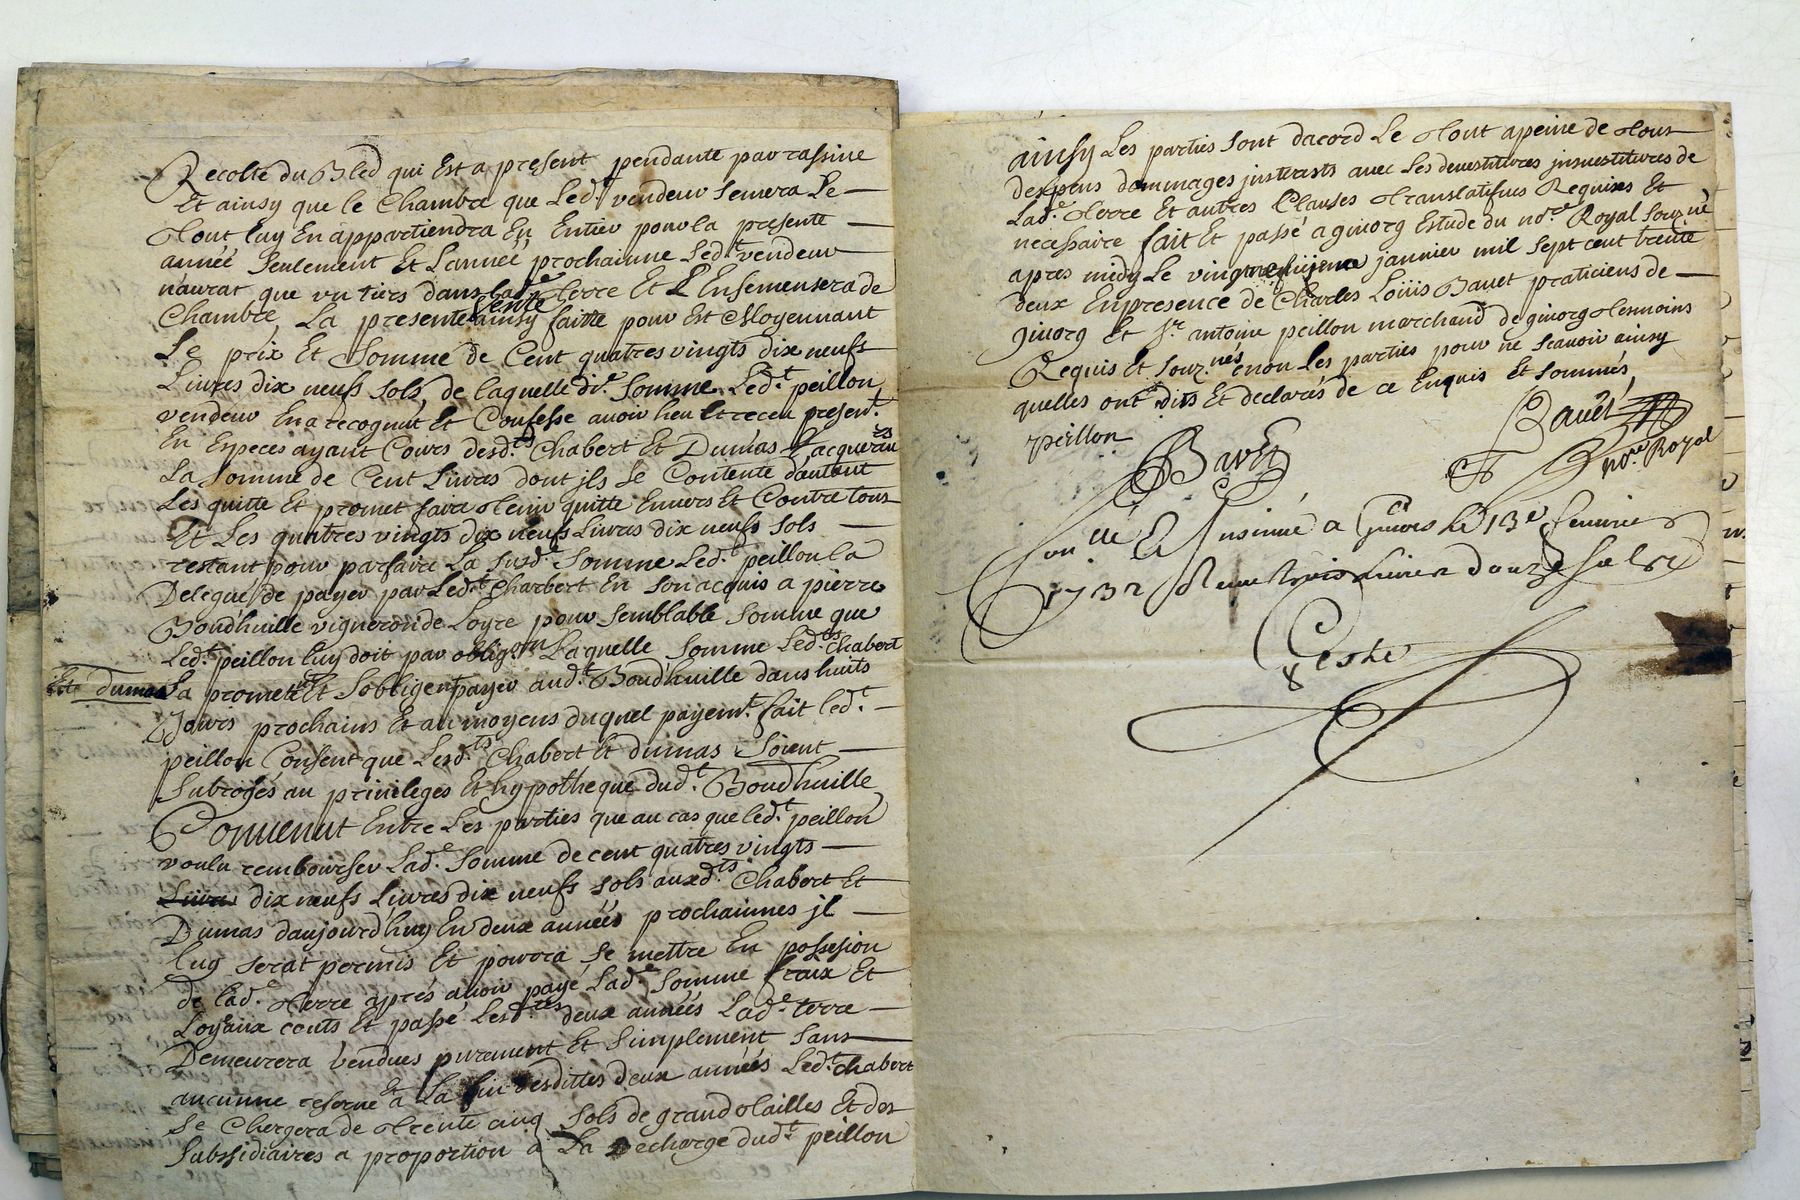 Recolte du Bled qui Est a present pendante par rassine
Et ainsy que le Chambre que Led.t vendeur semera Le
tout luy En appartiendra En Entier pour la presente
année seulement Et L'année prochainne Led.t vendeur
naurat que un tiers dans lad.e terre Et L'Ensemensera de
Chambre, La presente vente ainsy faitte pour Et Moyennant
Le prix Et Somme de Cent quatres vingts dix neufs
Livres dix neufs sols, de laquelle di.e Somme Led.t peillon
vendeur En a recognut Et Confesse avoir heu Et receu present.t
En Especes ayant Cours desd.ts Chabert Et Dumas Lacquereurs
La Somme de Cent Livres dont jls se Contente dautant
Les quitte Et promet faire tenir quitte Envers Et Contre tous
Et Les quatres vingts dix neufs Livres dix neufs sols
restant pour parfaire La susd.e Somme Led.t peillon la
Delegué de payer par Led.t Charbert En son acquis a pierre
Boudhuille vigneron de Loyre pour semblable somme que
Led.t peillon luy doit par oblig.on Laquelle Somme Led.ts Chabert
Et Dumas La promettent Et sobligent payer aud.t Boudhuille dans huits
Jours prochains Et au moyens duquel payem.t fait led.t
peillon Consent que Lesd.ts Chabert Et dumas Soient
Subrogés au privileges Et hypotheque dud.t Boudhuille
Convenut Entre Les parties que au cas que led.t peillon
voulu rembourser Lad.e Somme de cent quatres vingts
Livres dix neufs Livres dix neufs sols auxd.ts Chabert Et
Dumas daujourdhuy En deux années prochainnes jl
luy serat permis Et pourra se mettre En possesion
de lad.e terre après avoir payé Lad.e Somme fraix Et
Loyaux couts Et passé Lesd.tes deux années Lad.e terre
Demeurera vendues purement Et simplement sans
aucunne reserve Et a La fin desdittes deux années Led.t Chabert
se Chergera de trente cinq sols de grand tailles Et des
Subssidiaires a proportion a La Decharge dud.t peillon
ainsy Les parties sont dacord Le tout apeine de tous
despens dommages justerests avec Les devestitures jnvestitures de
Lad.e terre Et autres Clauses translatifves Requises Et
necessaire fait Et passé a givorg Estude du no.re Royal souz.né
apres midy Le vingt janvier mil sept cent trente
deux En presence de Charles Loüis Bavet praticiens de
givorg Et s.r antoine peillon marchand de givorg tesmoins
Requis Et souz.nés non Les parties pour ne scavoir ainsy
quelles ont dits Et declarés de ce Enquis Et sommés
peillon
Bavet
Bavet
no.re Royal
Con.llé Et Insinué a Givors le 13e fevrier
1732 Receu trois Livres douze sols
Coste